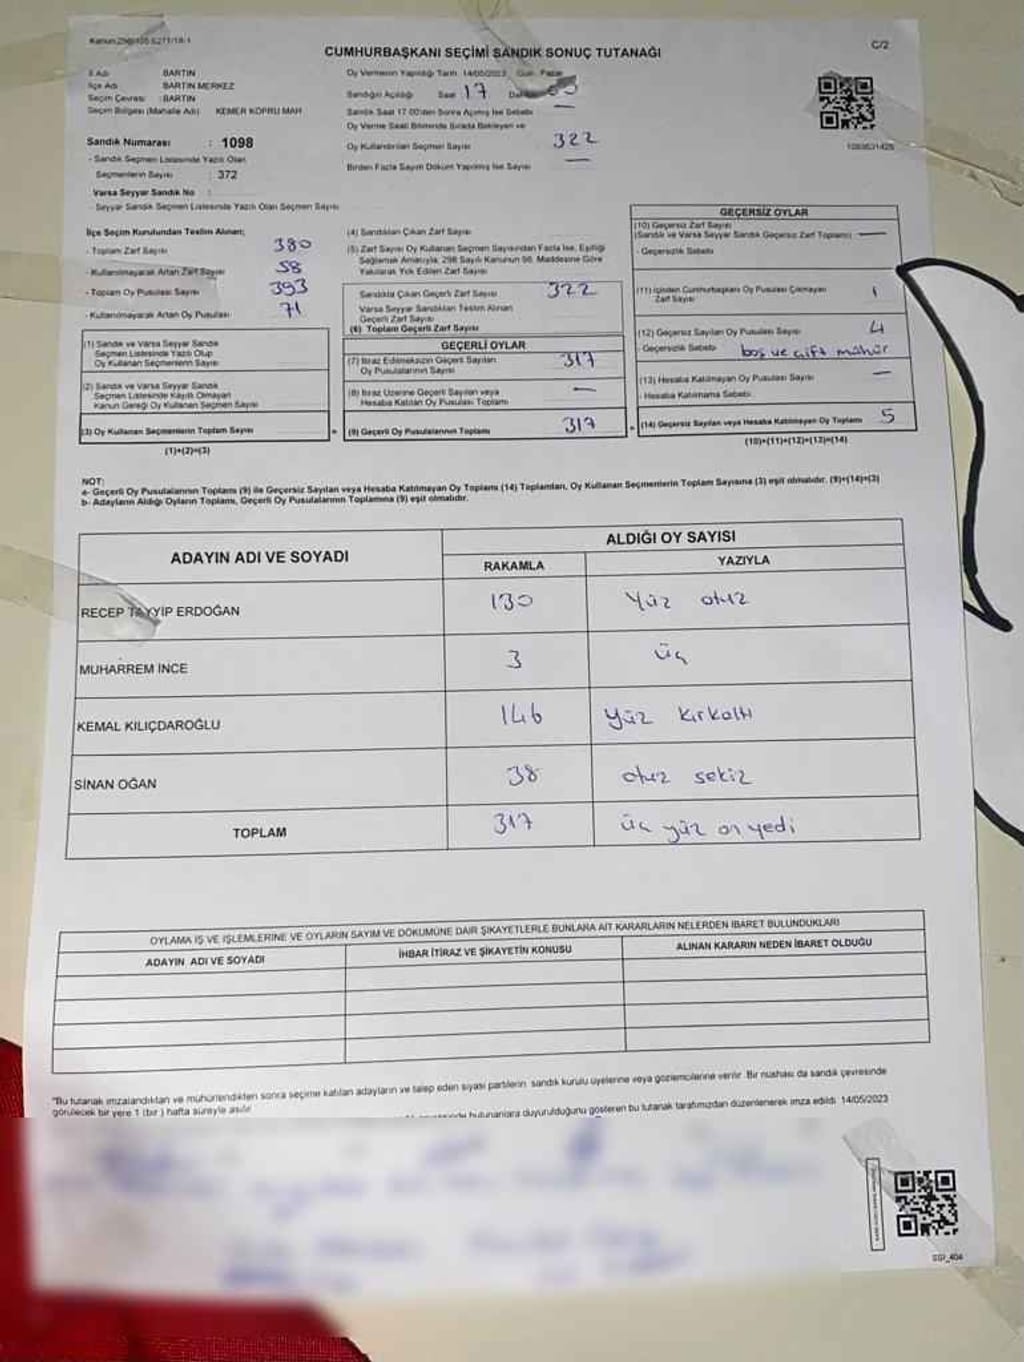 CUMHURBAŞKANI SEÇİMİ SANDIK SONUÇ TUTANAĞI
C/2
İl Adı : BARTIN
İlçe Adı : BARTIN MERKEZ
Seçim Çevresi : BARTIN
Seçim Bölgesi (Mahalle Adı) : KEMER KÖPRÜ MAH
Sandık Numarası : 1098
- Sandık Seçmen Listesinde Yazılı Olan
Seçmenlerin Sayısı : 372
Varsa Seyyar Sandık No :
- Seyyar Sandık Seçmen Listesinde Yazılı Olan Seçmen Sayısı
Oy Vermenin Yapıldığı Tarih 14/05/2023 Gün Pazar
Sandığın Açıldığı Saat 17
Sandık Saat 17.00'den Sonra Açılmış İse Sebebi —
Oy Verme Saati Bitiminde Sırada Bekleyen ve
Oy Kullandırılan Seçmen Sayısı 322
Birden Fazla Sayım Döküm Yapılmış İse Sayısı —
İlçe Seçim Kurulundan Teslim Alınan;
- Toplam Zarf Sayısı 380
- Kullanılmayarak Artan Zarf Sayısı 58
- Toplam Oy Pusulası Sayısı 393
- Kullanılmayarak Artan Oy Pusulası 71
(1) Sandık ve Varsa Seyyar Sandık
Seçmen Listesinde Yazılı Olup
Oy Kullanan Seçmenlerin Sayısı
(2) Sandık ve Varsa Seyyar Sandık
Seçmen Listesinde Kayıtlı Olmayan
Kanun Gereği Oy Kullanan Seçmen Sayısı
(3) Oy Kullanan Seçmenlerin Toplam Sayısı
(1)+(2)=(3)
(4) Sandıktan Çıkan Zarf Sayısı
(5) Zarf Sayısı Oy Kullanan Seçmen Sayısından Fazla İse, Eşitliği
Sağlamak Amacıyla, 298 Sayılı Kanunun 98. Maddesine Göre
Yakılarak Yok Edilen Zarf Sayısı
Sandıkta Çıkan Geçerli Zarf Sayısı 322
Varsa Seyyar Sandıktan Teslim Alınan
Geçerli Zarf Sayısı
(6) Toplam Geçerli Zarf Sayısı
GEÇERLİ OYLAR
(7) İtiraz Edilmeksizin Geçerli Sayılan
Oy Pusulalarının Sayısı 317
(8) İtiraz Üzerine Geçerli Sayılan veya
Hesaba Katılan Oy Pusulası Toplamı —
(9) Geçerli Oy Pusulalarının Toplamı 317
GEÇERSİZ OYLAR
(10) Geçersiz Zarf Sayısı
(Sandık ve Varsa Seyyar Sandık Geçersiz Zarf Toplamı) —
- Geçersizlik Sebebi
(11) İçinden Cumhurbaşkanı Oy Pusulası Çıkmayan
Zarf Sayısı 1
(12) Geçersiz Sayılan Oy Pusulası Sayısı 4
- Geçersizlik Sebebi boş ve çift mühür
(13) Hesaba Katılmayan Oy Pusulası Sayısı —
- Hesaba Katılmama Sebebi
(14) Geçersiz Sayılan veya Hesaba Katılmayan Oy Toplamı 5
(10)+(11)+(12)+(13)=(14)
NOT:
a- Geçerli Oy Pusulalarının Toplamı (9) ile Geçersiz Sayılan veya Hesaba Katılmayan Oy Toplamı (14) Toplamları, Oy Kullanan Seçmenlerin Toplam Sayısına (3) eşit olmalıdır. (9)+(14)=(3)
b- Adayların Aldığı Oyların Toplamı, Geçerli Oy Pusulalarının Toplamına (9) eşit olmalıdır.
ADAYIN ADI VE SOYADI
ALDIĞI OY SAYISI
RAKAMLA YAZIYLA
RECEP TAYYİP ERDOĞAN 130 Yüz otuz
MUHARREM İNCE 3 üç
KEMAL KILIÇDAROĞLU 146 yüz kırkaltı
SİNAN OĞAN 38 otuz sekiz
TOPLAM 317 üç yüz on yedi
OYLAMA İŞ VE İŞLEMLERİNE VE OYLARIN SAYIM VE DÖKÜMÜNE DAİR ŞİKAYETLERLE BUNLARA AİT KARARLARIN NELERDEN İBARET BULUNDUKLARI
ADAYIN ADI VE SOYADI İHBAR İTİRAZ VE ŞİKAYETİN KONUSU ALINAN KARARIN NEDEN İBARET OLDUĞU
"Bu tutanak imzalandıktan ve mühürlendikten sonra seçime katılan adayların ve talep eden siyasi partilerin sandık kurulu üyelerine veya gözlemcilerine verilir. Bir nüshası da sandık çevresinde
görülecek bir yere 1 (bir) hafta süreyle asılır
bulunanlara duyurulduğunu gösteren bu tutanak tarafımızdan düzenlenerek imza edildi. 14/05/2023